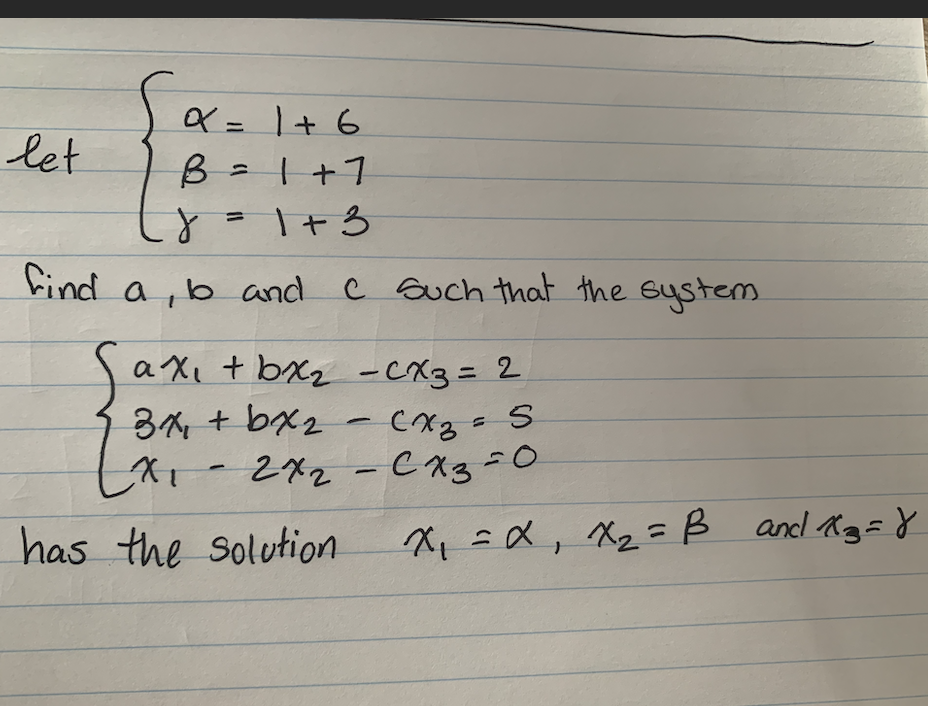 let
α = 1 + 6
β = 1 + 7
γ = 1 + 3
find a, b and c such that the system
ax₁ + bx₂ - cx₃ = 2
3x₁ + bx₂ - cx₃ = 5
x₁ - 2x₂ - cx₃ = 0
has the solution x₁ = α, x₂ = β and x₃ = γ